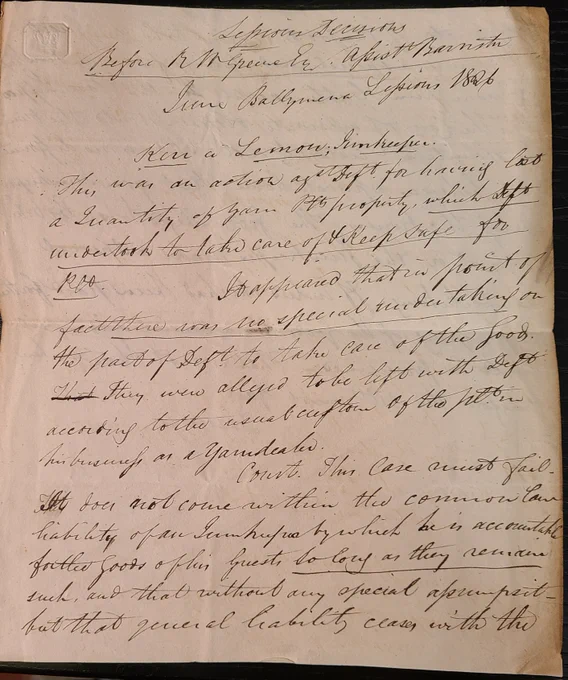 Sessions Decisions
Before R W Greene Esq. Assist Barrister
June Ballymena Sessions 1826
Kerr a Lemon, Innkeeper.
This was an action agst Deft. for having lost
a Quantity of Yarn Plts property, which Deft
undertook to take care of & Keep safe for
Plt. It appeared that in point of
fact there was no special undertaking on
the part of Deft. to take care of the Goods.
That They were alleged to be left with Deft
according to the usual custom of the plt. in
his business as a Yarndealer.
Court. This Case must fail.
It does not come within the common law
liability of an Innkeeper by which he is accountable
for the Goods of his Guests so long as they remain
such, and that without any special assumpsit
but that general liability ceases with the